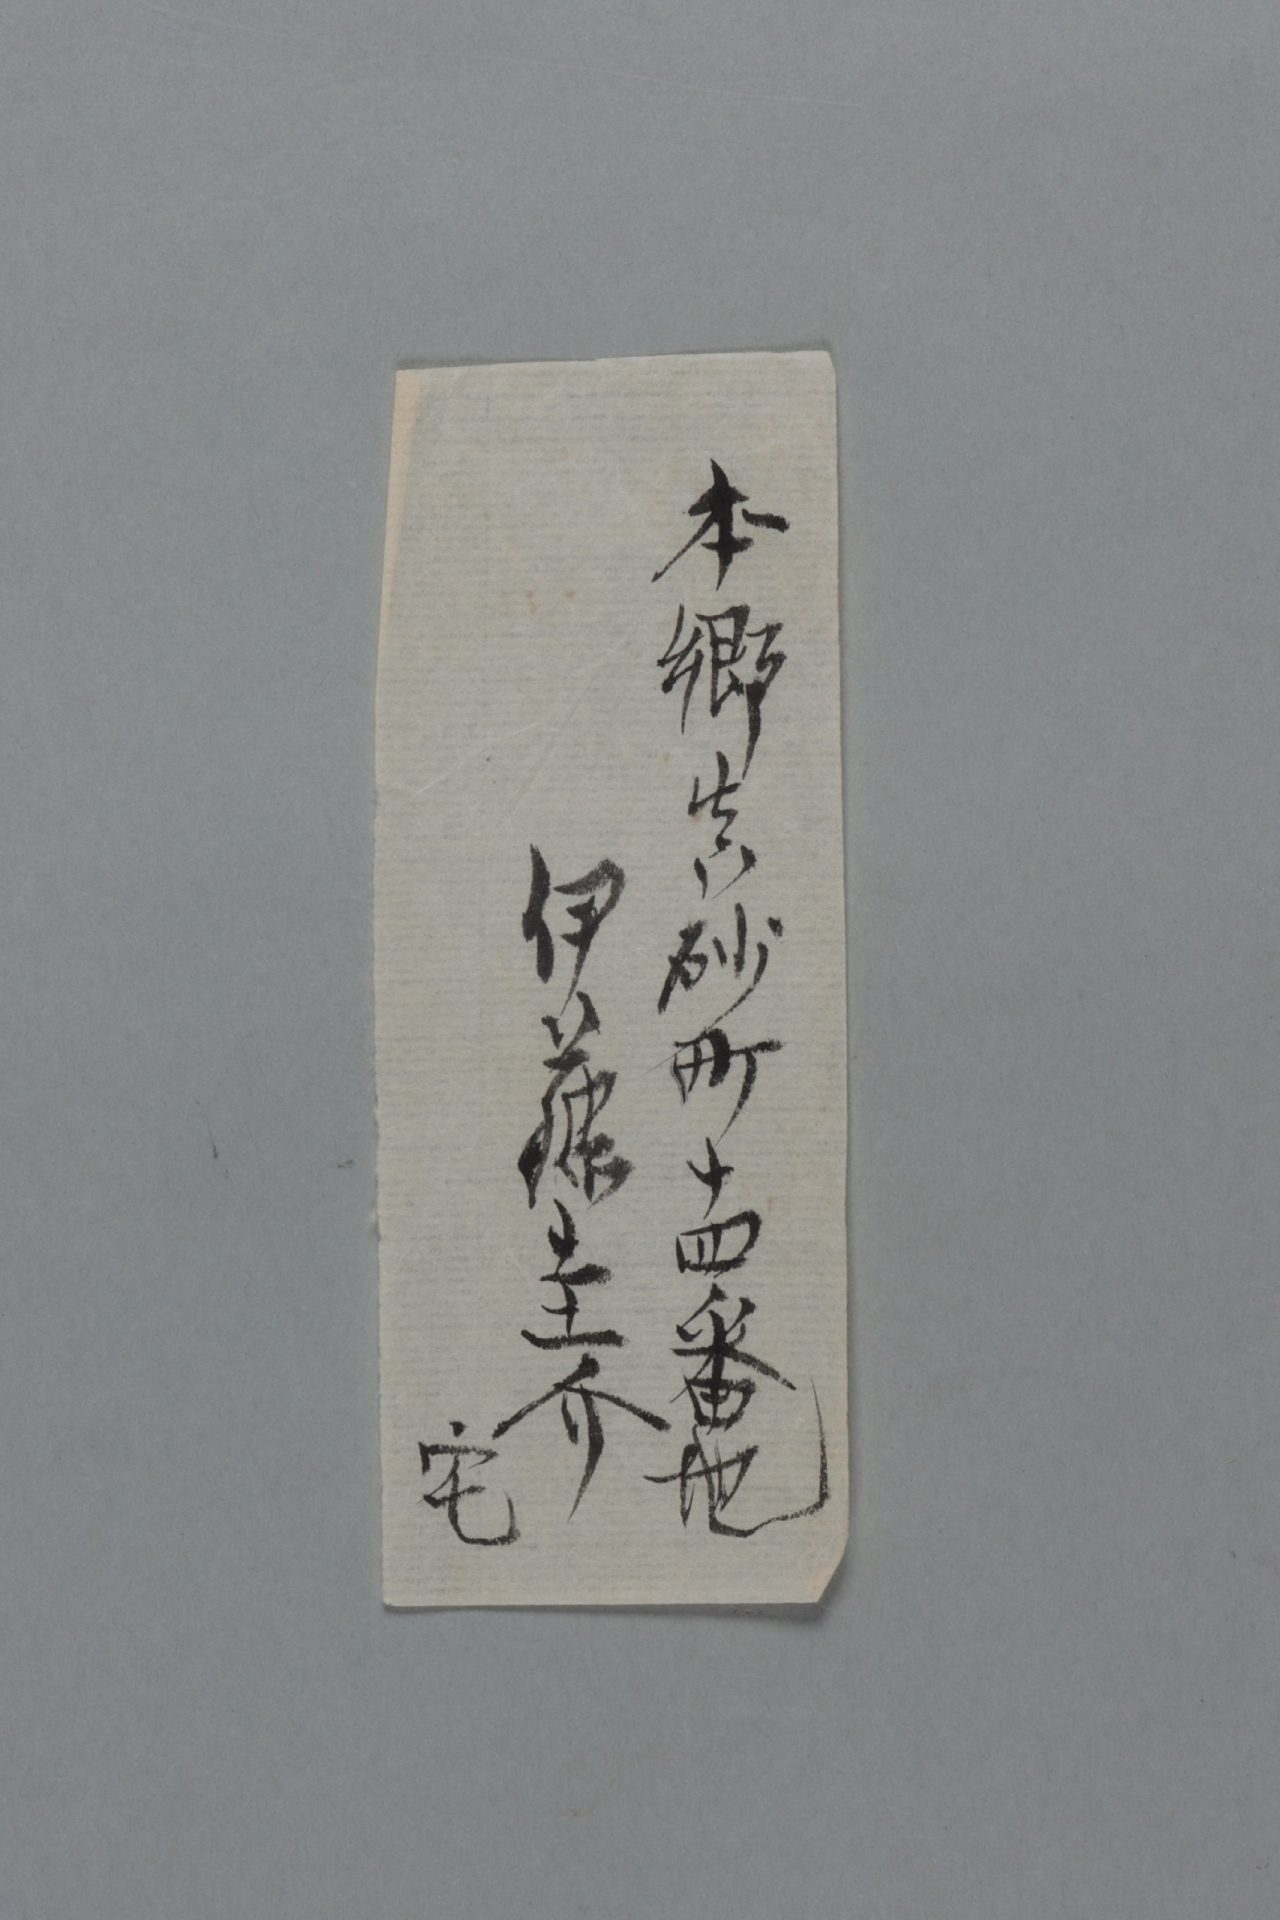 本郷真砂町十四番地
伊藤圭介
宅